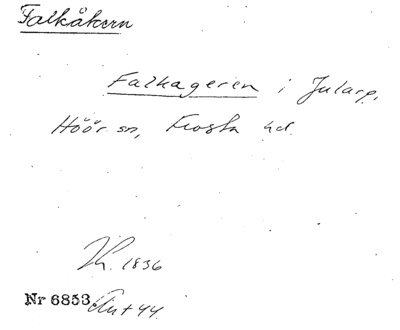 Falkåkern
Falkageren i Jularp,
Höör sn, Frosta hd.
1836
Nr 6853